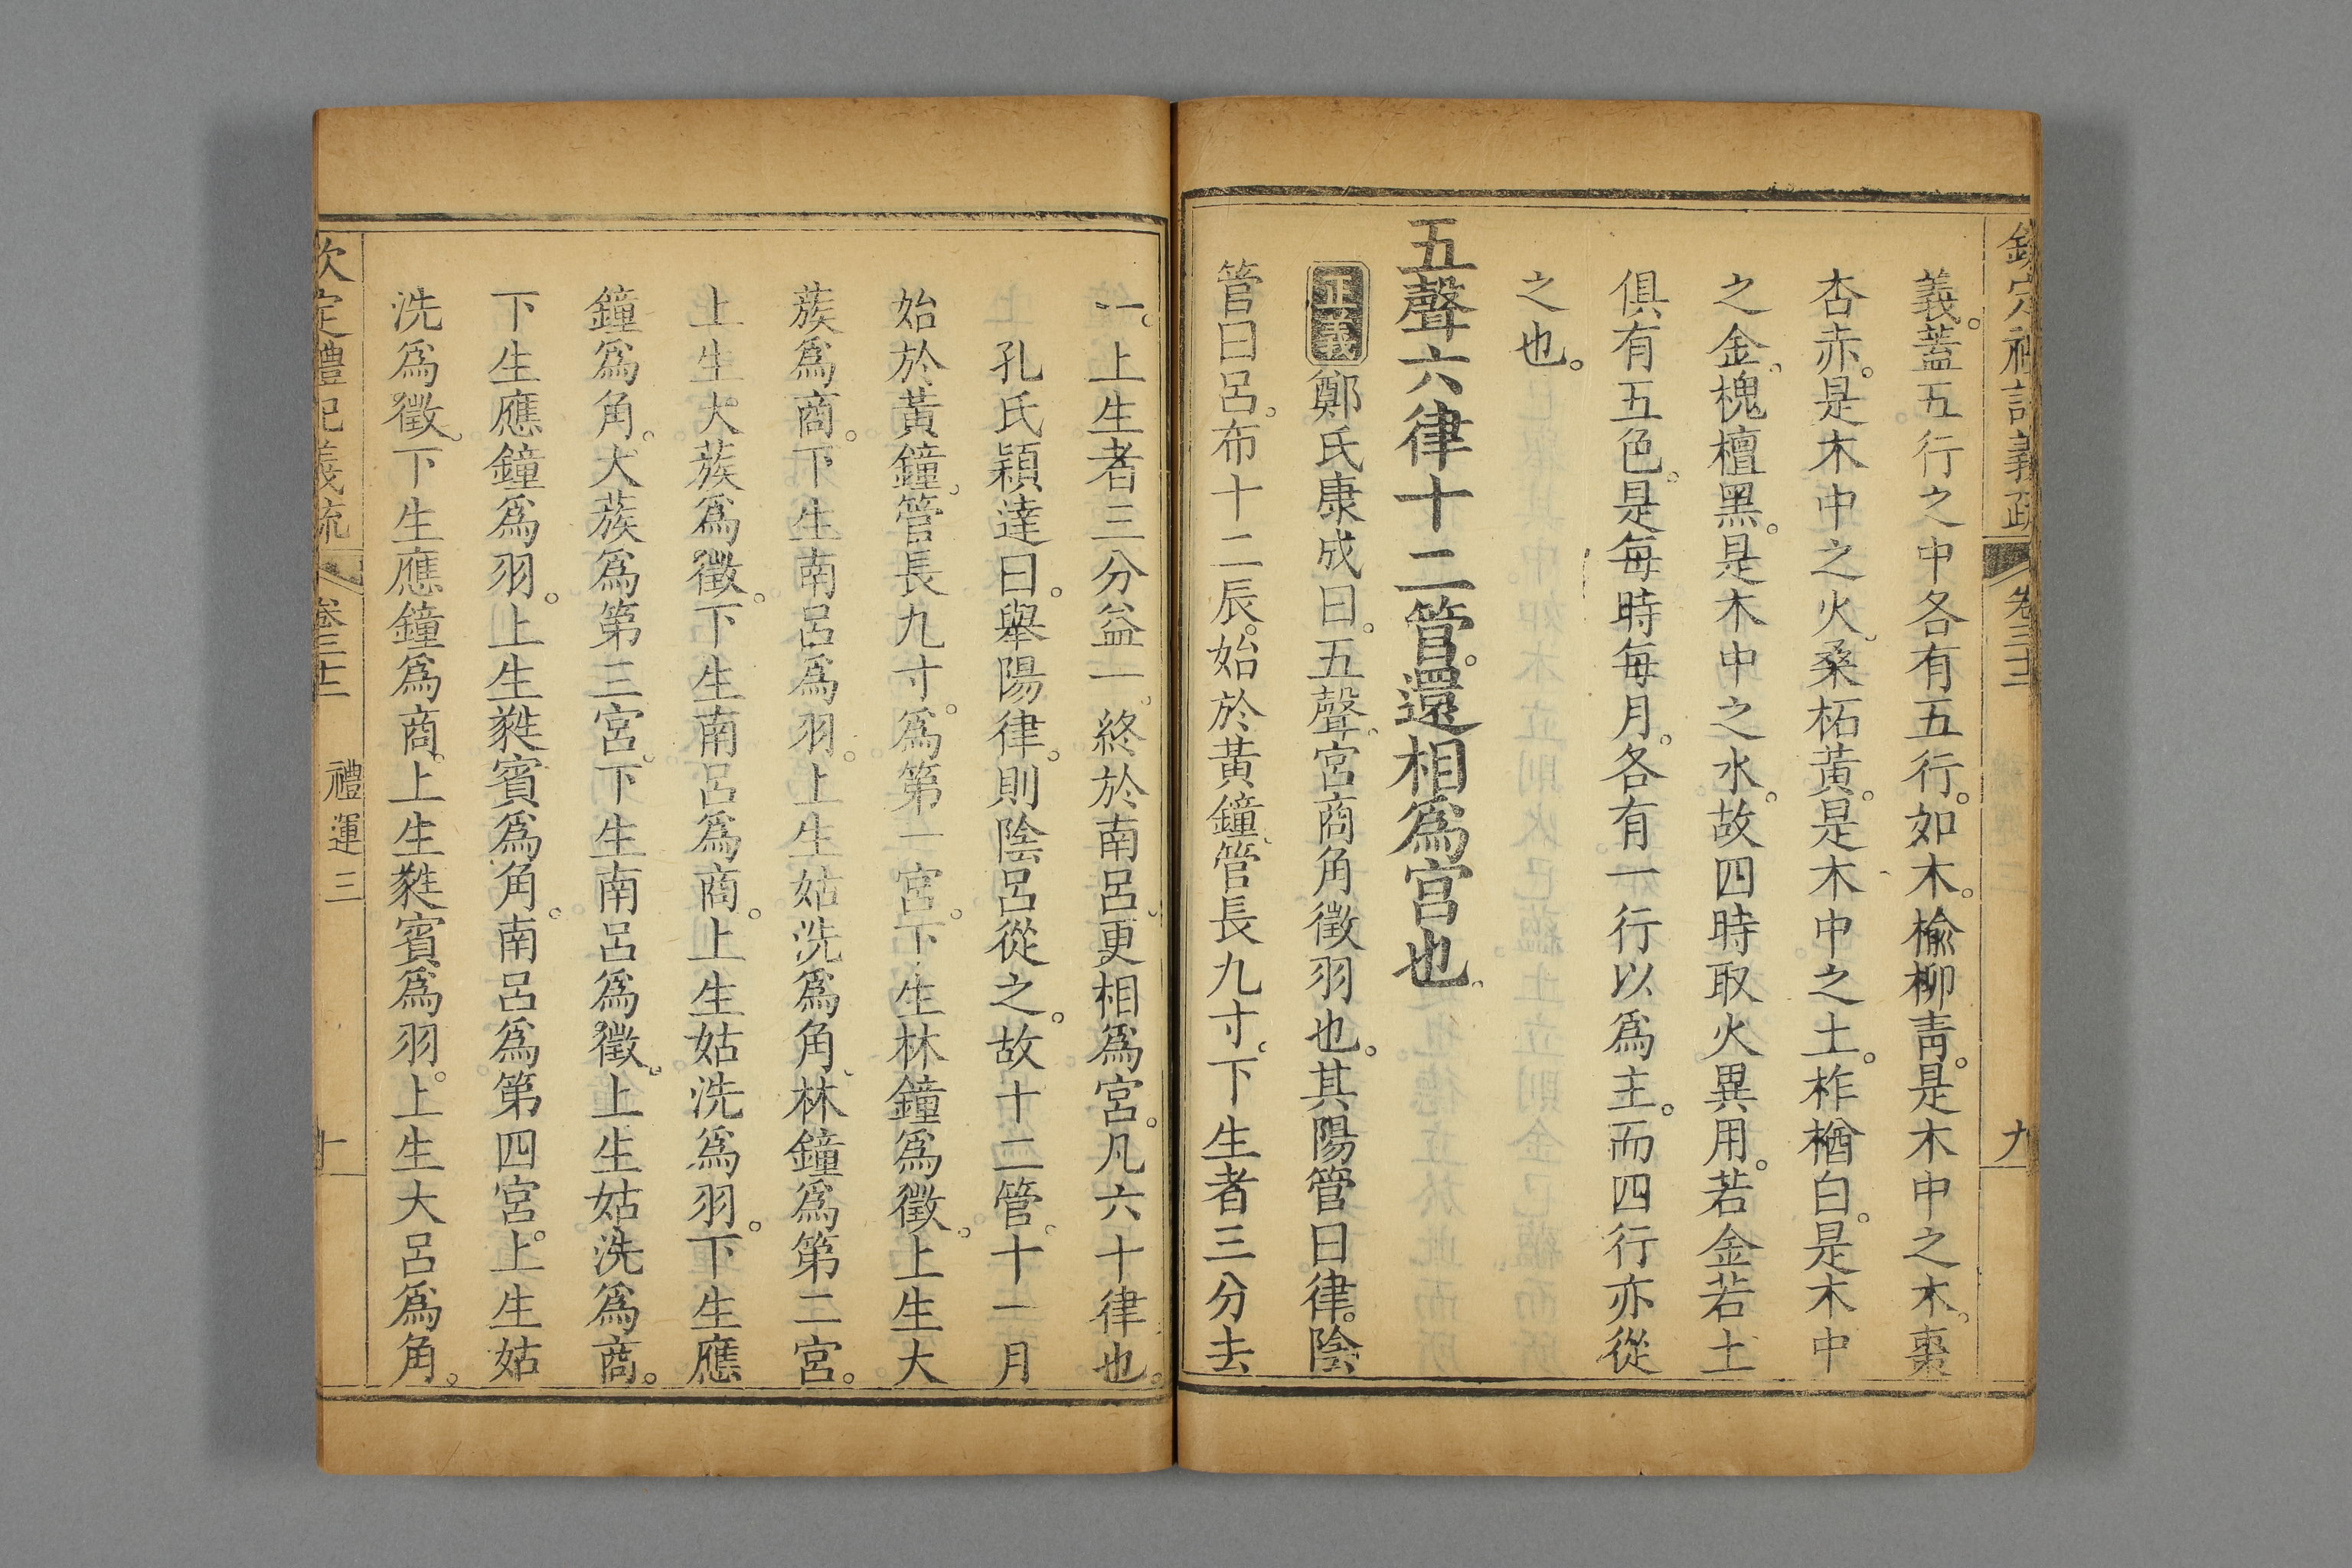 欽定禮記義疏 卷三十二 九
義。蓋五行之中各有五行。如木。楡柳靑。是木中之木。棗
杏赤。是木中之火。桑柘黃。是木中之土。柞楢白。是木中
之金。槐檀黑。是木中之水。故四時取火異用。若金若土
俱有五色。是每時每月。各有一行以爲主。而四行亦從
之也。
五聲六律十二管。還相爲宮也。
正義鄭氏康成曰。五聲。宮商角徵羽也。其陽管曰律。陰
管曰呂。布十二辰。始於黃鐘。管長九寸。下生者三分去
一。上生者三分益一。終於南呂。更相爲宮。凡六十律也。
孔氏穎達曰。舉陽律。則陰呂從之。故十二管。十一月
始於黃鐘。管長九寸。爲第一宮。下生林鐘爲徵。上生大
蔟爲商。下生南呂爲羽。上生姑洗爲角。林鐘爲第二宮。
上生大蔟爲徵。下生南呂爲商。上生姑洗爲羽。下生應
鐘爲角。大蔟爲第三宮。下生南呂爲徵。上生姑洗爲商。
下生應鐘爲羽。上生蕤賓爲角。南呂爲第四宮。上生姑
洗爲徵。下生應鐘爲商。上生蕤賓爲羽。上生大呂爲角。
欽定禮記義疏 卷三十二 禮運三 十